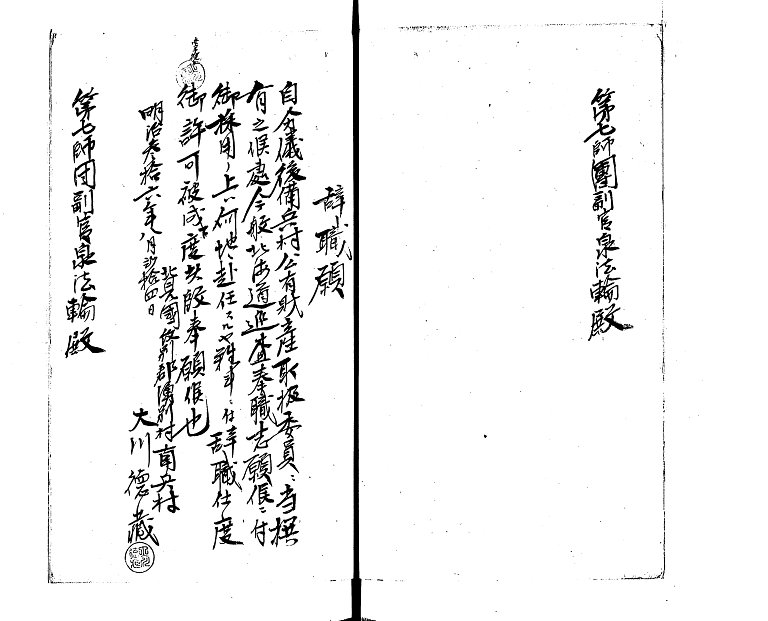 第七師團副官泉法輪殿
辞職願
自分儀後備兵村公有財産取扱委員ニ当撰
有之候處今般北海道巡査奉職志願候ニ付
御採用ノ上ハ何地ヘ赴任 難斗ニ付辞職仕度
御許可被成下度此段奉願候也
北見國紋別郡湧別村南兵村
明治参拾六年八月弐拾四日
大川徳蔵
第七師団副官泉法輪殿